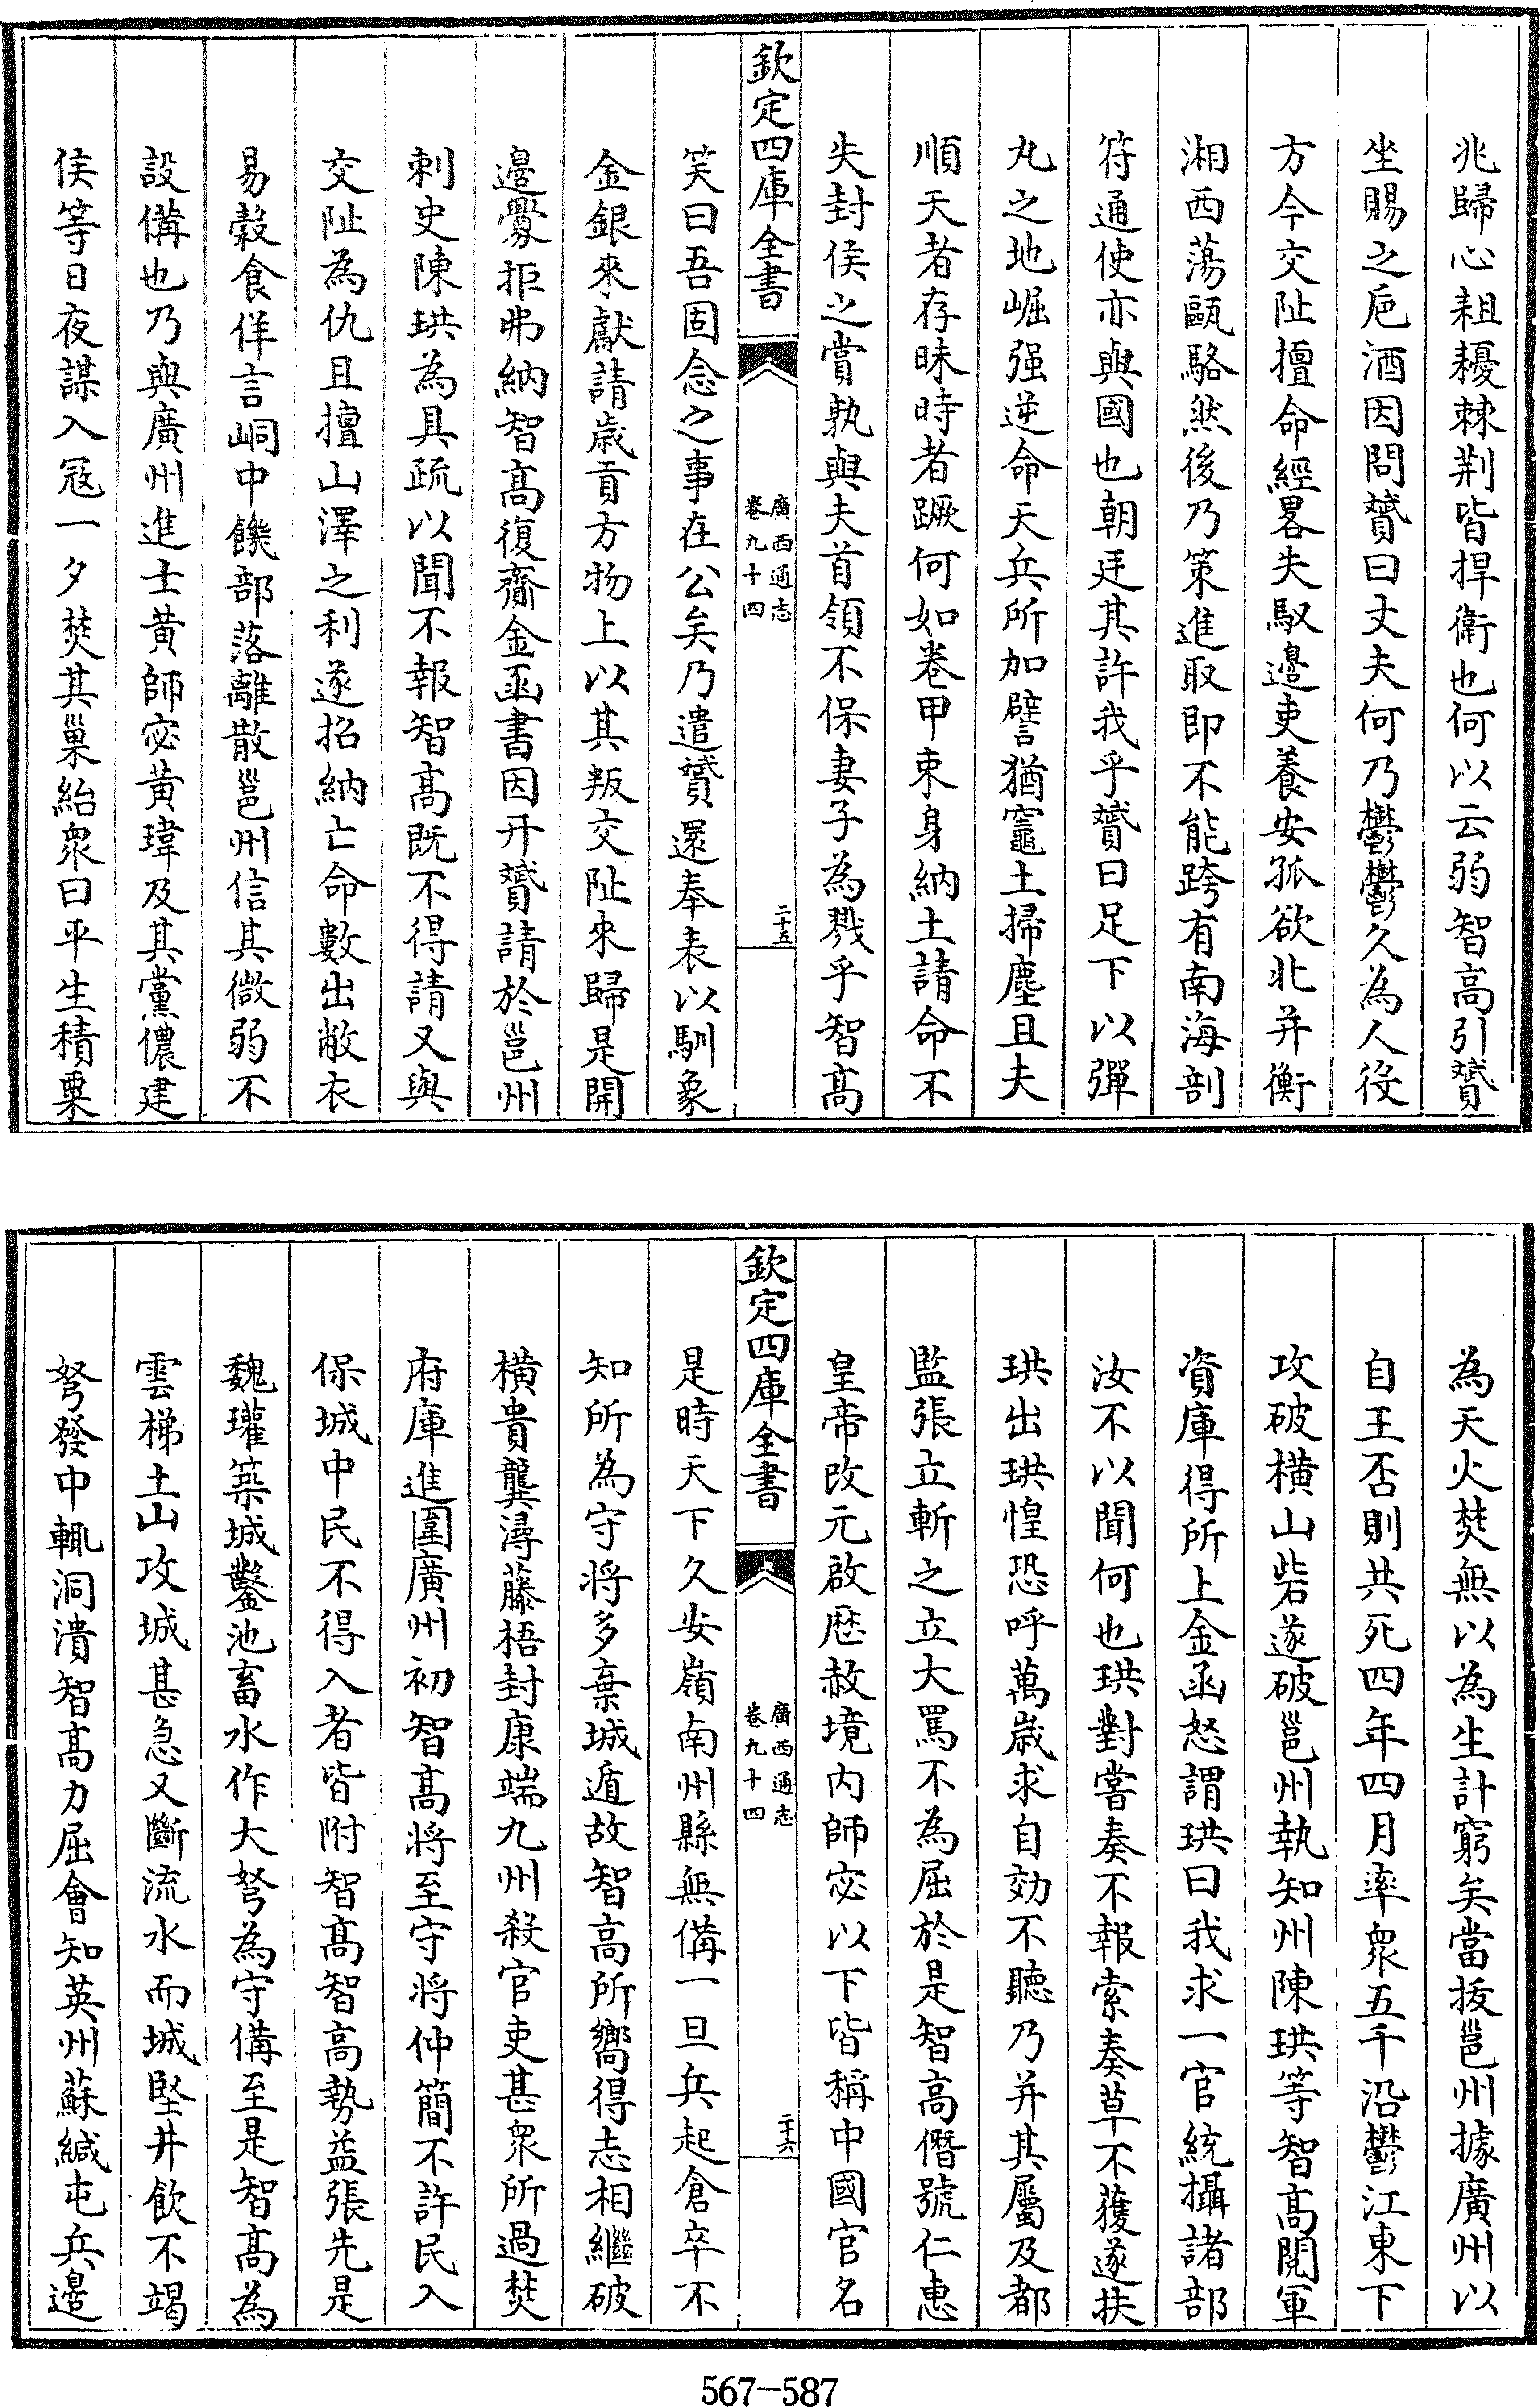 兆歸心耝耰棘荆皆捍衛也何以云弱智高引贇
坐賜之巵酒因問贇曰丈夫何乃鬱鬱久為人役
方今交阯擅命經畧失馭邊吏養安孤欲北并衡
湘西蕩甌駱然後乃策進取即不能跨有南海剖
符通使亦與國也朝廷其許我乎贇曰足下以彈
丸之地崛强逆命天兵所加譬猶竈土掃塵且夫
順天者存昧時者蹶何如卷甲束身納土請命不
失封侯之賞孰與夫首領不保妻子為戮乎智高
欽定四庫全書
廣西通志
卷九十四
二十五
笑曰吾固念之事在公矣乃遣贇還奉表以馴象
金銀來獻請歲貢方物上以其叛交阯來歸是開
邊釁拒弗納智高復齎金函書因幵贇請於邕州
刺史陳珙為具疏以聞不報智高既不得請又與
交阯為仇且擅山澤之利遂招納亡命數出敝衣
易穀食佯言峒中饑部落離散邕州信其微弱不
設備也乃與廣州進士黄師宓黄瑋及其黨儂建
侯等日夜謀入冦一夕焚其巢紿衆曰平生積粟
為天火焚無以為生計窮矣當拔邕州據廣州以
自王否則共死四年四月率衆五千沿鬱江東下
攻破横山砦遂破邕州執知州陳珙等智高閱軍
資庫得所上金函怒謂珙曰我求一官統攝諸部
汝不以聞何也珙對嘗奏不報索奏草不獲遂扶
珙出珙惶恐呼萬歲求自効不聽乃并其屬及都
監張立斬之立大罵不為屈於是智高僭號仁惠
皇帝改元啟歴赦境内師宓以下皆稱中國官名
欽定四庫全書
廣西通志
卷九十四
二十六
是時天下久安嶺南州縣無備一旦兵起倉卒不
知所為守将多棄城遁故智高所嚮得志相繼破
横貴龔潯藤梧封康端九州殺官吏甚衆所過焚
府庫進圍廣州初智高将至守将仲簡不許民入
保城中民不得入者皆附智高智高勢益張先是
魏瓘築城鑿池畜水作大弩為守備至是智高為
雲梯土山攻城甚急又斷流水而城堅井飲不竭
弩發中輒洞潰智高力屈會知英州蘇緘屯兵邊
567-587